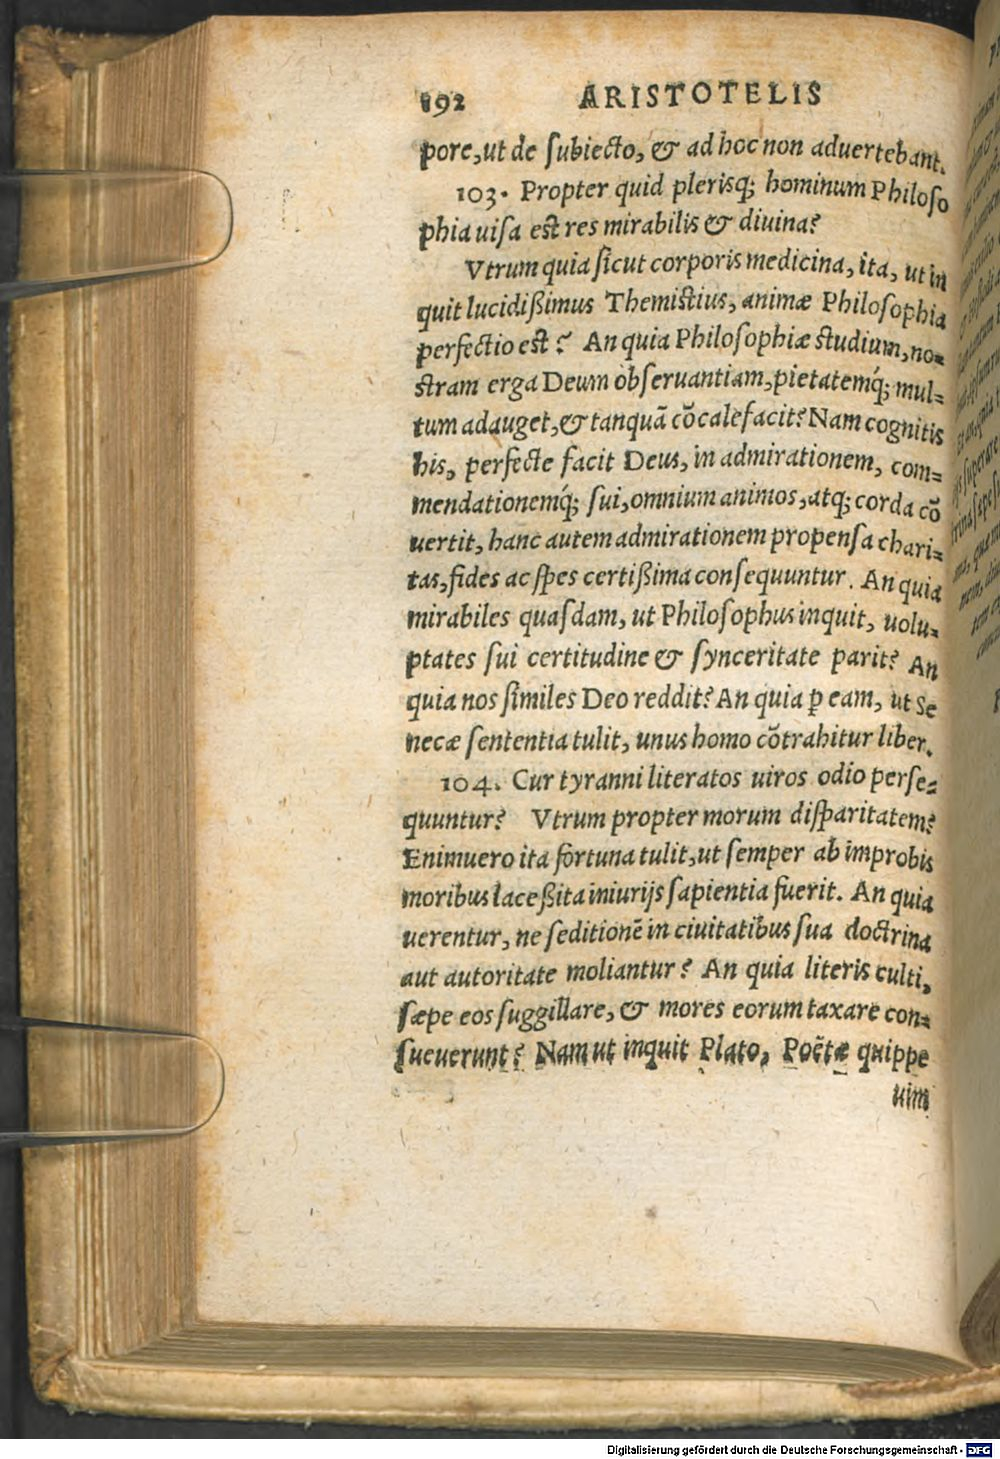 192 ARISTOTELIS
pore, ut de ſubiecto, & ad hoc non aduertebant.
103. Propter quid plerisq; hominum Philoſo
phia uiſa est res mirabilis & diuina?
Vtrum quia ſicut corporis medicina, ita, ut in
quit lucidißimus Themistius, animæ Philoſophia
perfectio est? An quia Philoſophiæ studium, no=
stram erga Deum obſeruantiam, pietatemq́; mul=
tum adauget, & tanquã cõcalefacit? Nam cognitis
his, perfecte facit Deus, in admirationem, com=
mendationemq́; ſui, omnium animos, atq; corda cõ
uertit, hanc autem admirationem propenſa chari=
tas, fides ac ſpes certißima conſequuntur. An quia
mirabiles quaſdam, ut Philoſophus inquit, uolu=
ptates ſui certitudine & ſynceritate parit? An
quia nos ſimiles Deo reddit? An quia ꝑ eam, ut Se
necæ ſententia tulit, unus homo cõtrahitur liber.
104. Cur tyranni literatos uiros odio perſe=
quuntur? Vtrum propter morum diſparitatem?
Enimuero ita fortuna tulit, ut ſemper ab improbis
moribus laceßita iniurijs ſapientia fuerit. An quia
uerentur, ne ſeditionẽ in ciuitatibus ſua doctrina
aut autoritate moliantur? An quia literis culti,
ſæpe eos ſuggillare, & mores eorum taxare con=
ſueuerunt? Nam ut inquit Plato, Poëtæ quippe
uim
Digitalisierung gefördert durch die Deutsche Forschungsgemeinschaft - DFG